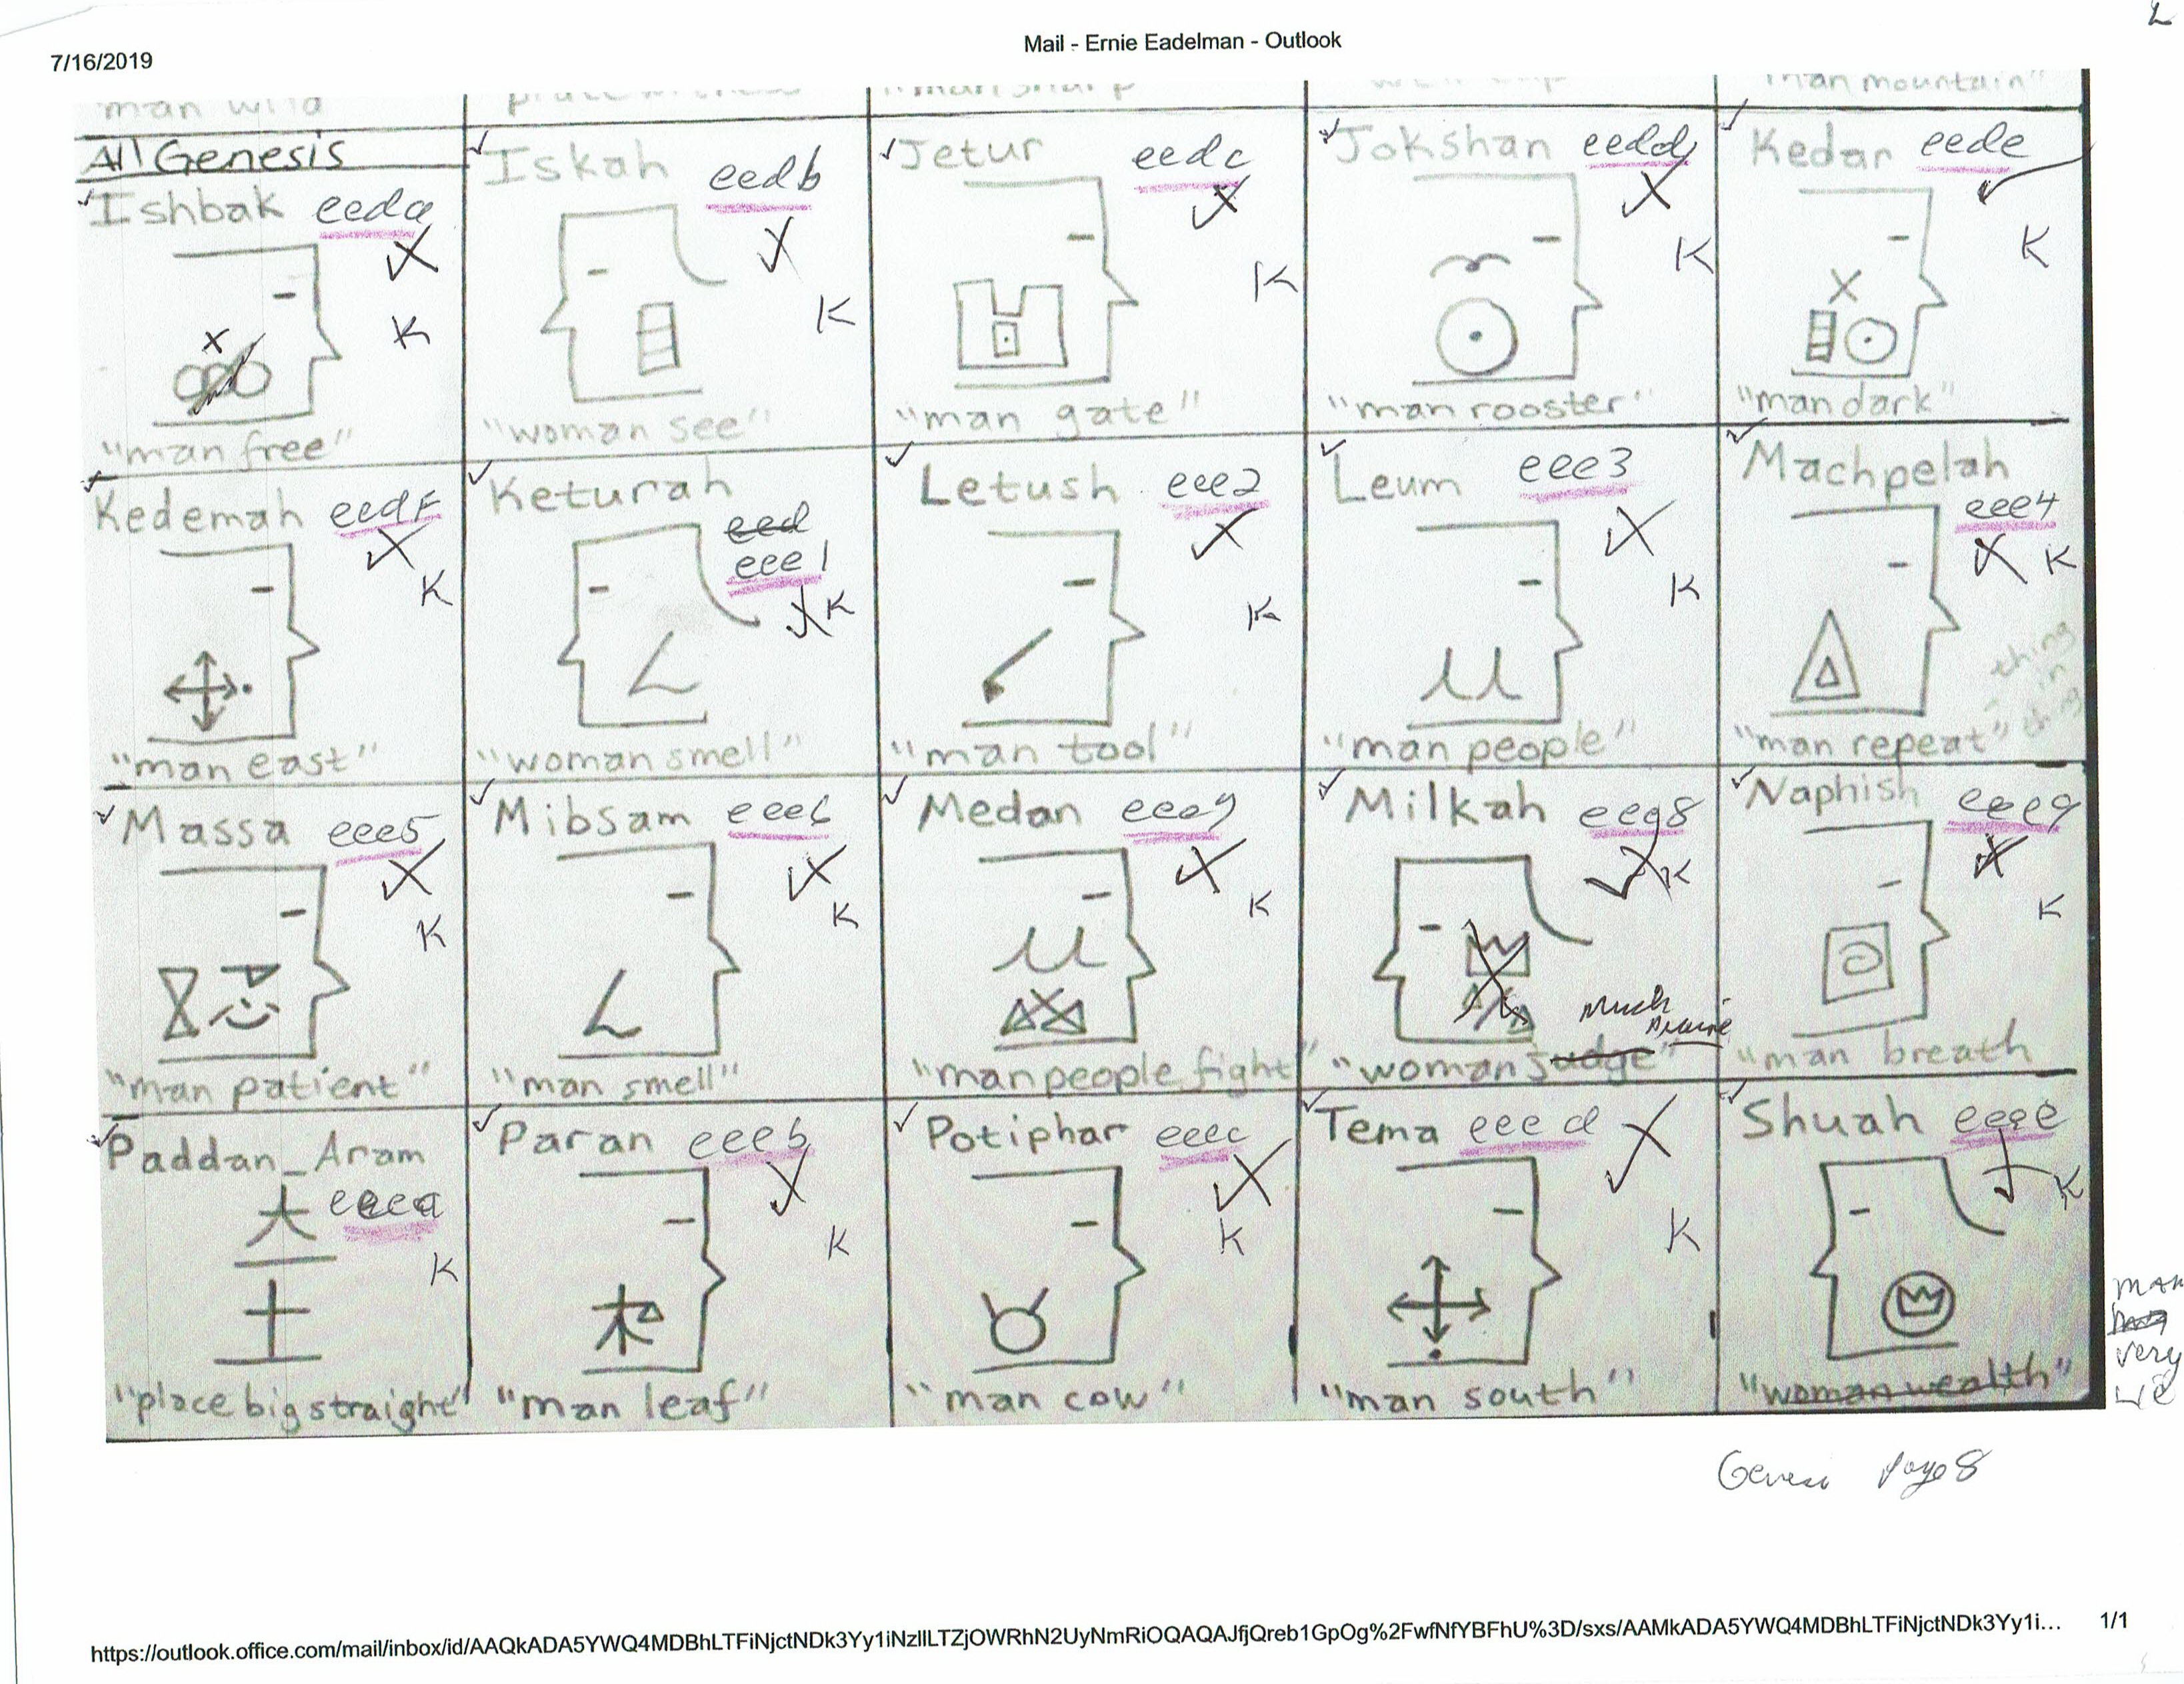 2
7/16/2019
Mail - Ernie Eadelman - Outlook
man wild
man mountain"
All Genesis
Ishbak eeda
K
"man free"
Iskah eedb
K
"woman see"
Jetur eedc
K
"man gate"
Jokshan eedd
K
"man rooster"
Kedar eede
K
"man dark"
Kedemah eedf
K
"man east"
Keturah
eed
eee1
K
"woman smell"
Letush eee2
K
"man tool"
Leum eee3
K
"man people"
Machpelah
eee4
K
thing
in
thing
"man repeat"
Massa eee5
K
"man patient"
Mibsam eee6
K
"man smell"
Medan
K
"man people fight"
Milkah eee8
K
Much
"woman judge"
Naphish eee9
K
"man breath
Paddan_Aram
eeea
大
土
K
"place big straight"
Paran eeeb
K
"man leaf"
Potiphar eeec
K
"man cow"
Tema eeed
K
"man south"
Shuah eeee
K
"woman wealth"
man
very
Genesi Page 8
https://outlook.office.com/mail/inbox/id/AAQkADA5YWQ4MDBhLTFiNjctNDk3Yy1iNzllLTZjOWRhN2UyNmRiOQAQAJfjQreb1GpOg%2FwfNfYBFhU%3D/sxs/AAMkADA5YWQ4MDBhLTFiNjctNDk3Yy1i... 1/1